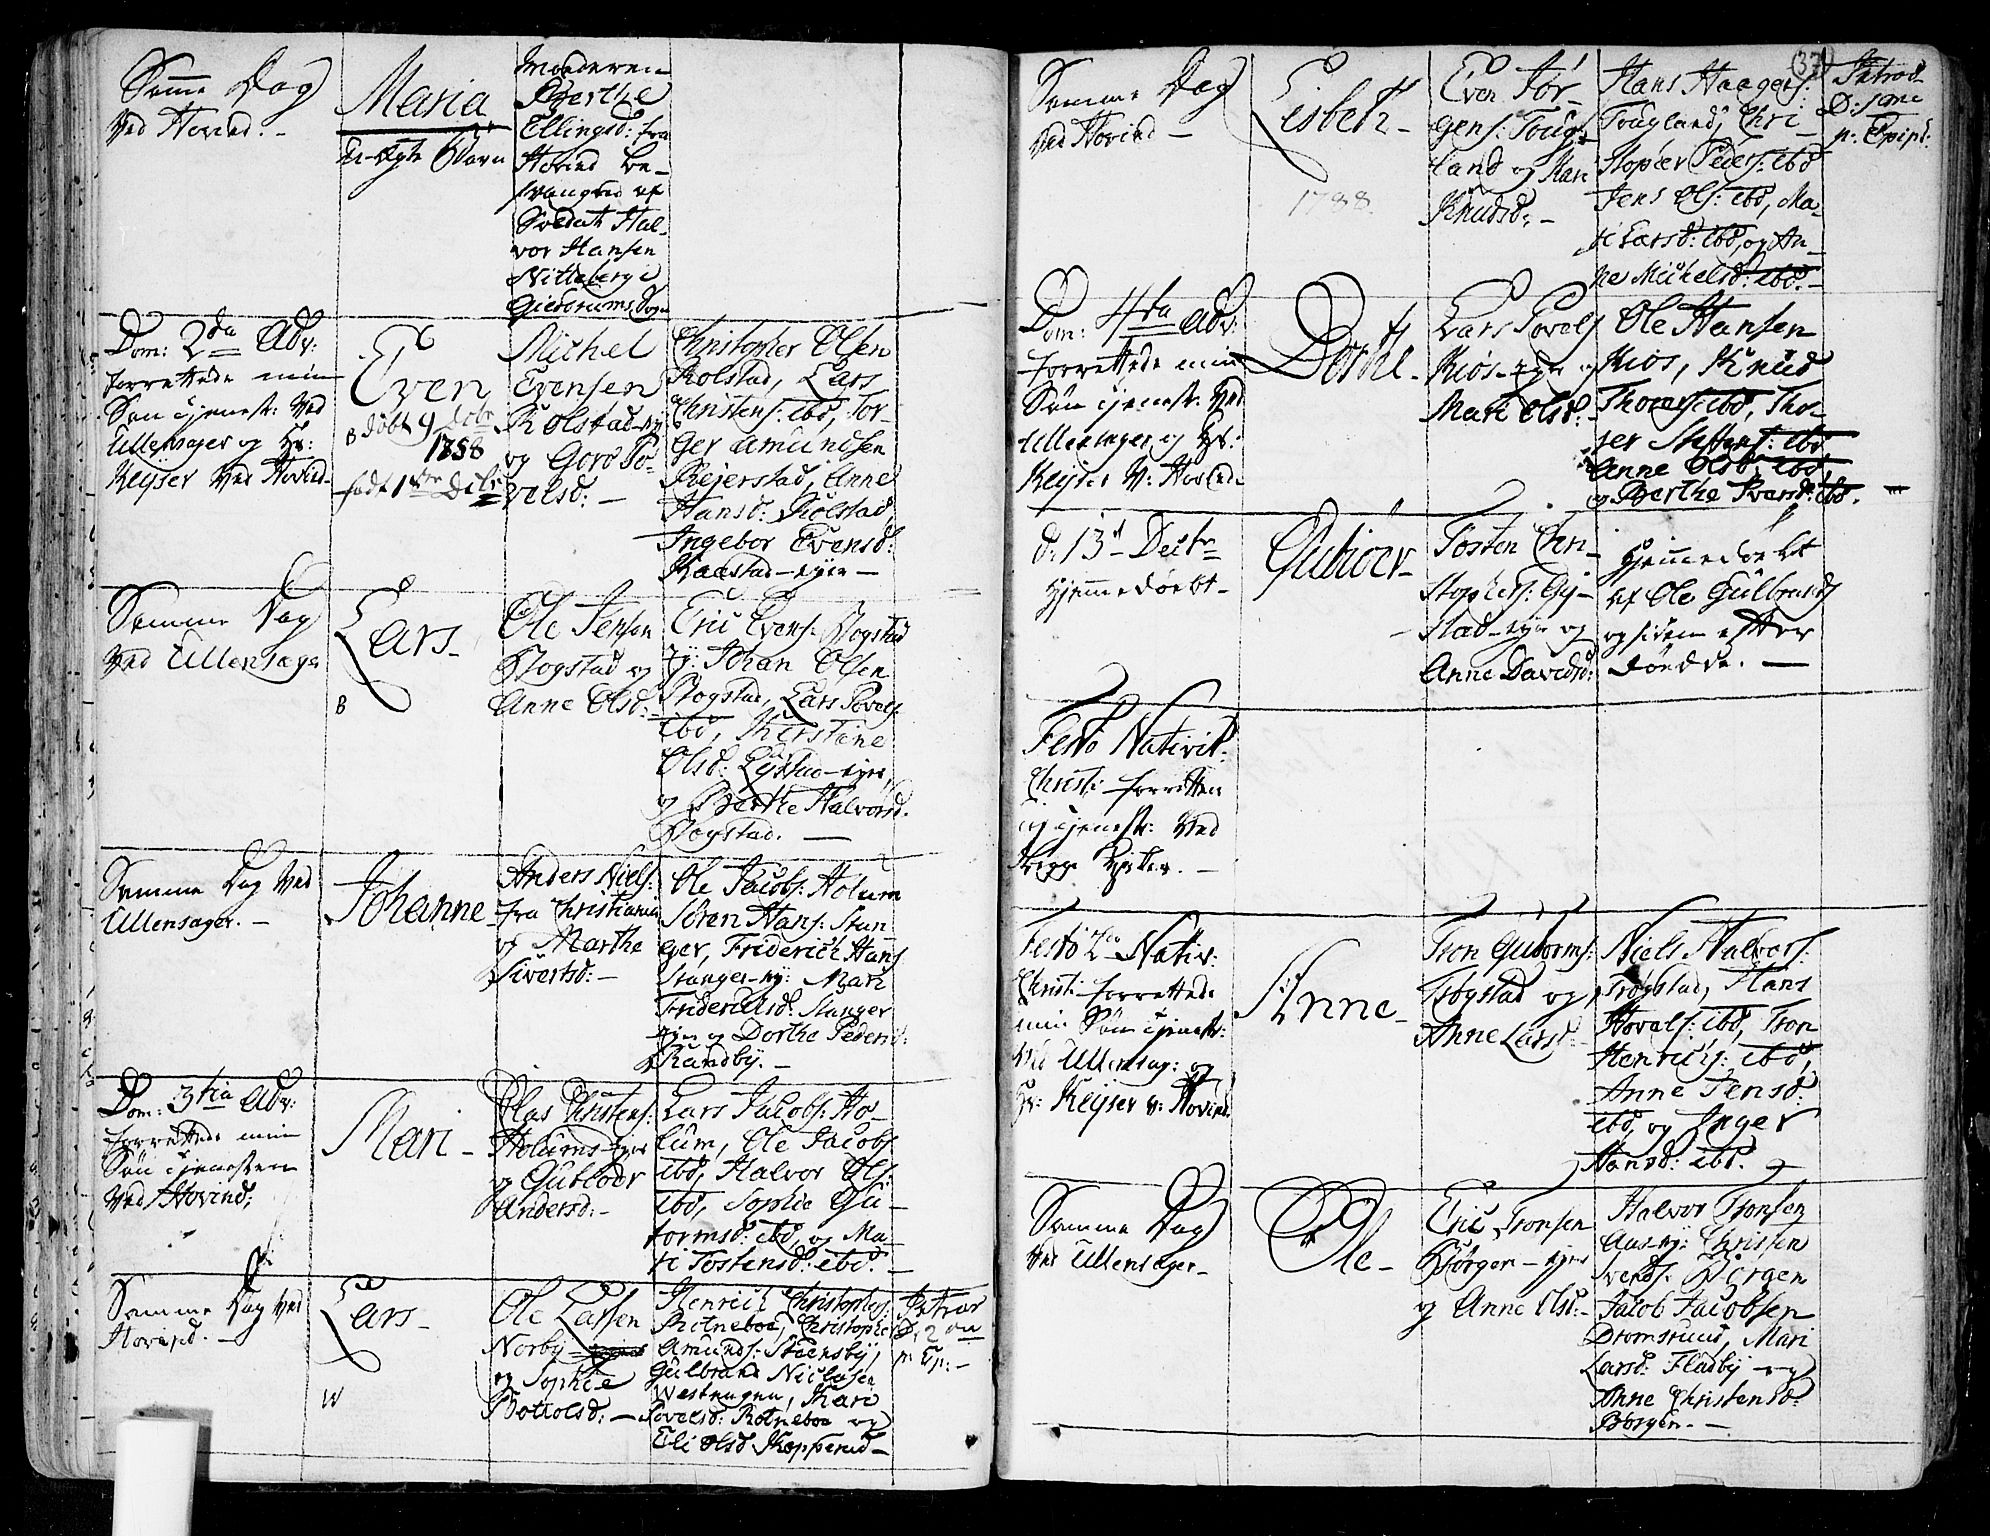 Samme Dag
ved Hovind. -
Maria
U-ægte Barn
Moderen
Berthe
Ellingsd: fra
Hovind be-
svangred af
Soldat Hal-
vor Hansen
Nitteberg i
Gierdrums Sogn
Dom: 2da Adv:
forrettede min
Søn tjenest: ved
Ullensager og Hr:
Keyser ved Hovind.
Even
B døbt 9 Decbr
1858
født 1ste Decbr
Michel
Evensen
Rolstad-ey
og Goro Po-
velsd: -
Christopher Olsen
Rolstad, Lars
Christens: ibd, Tor-
ger Amundsen
Rejerstad, Anne
Hansd: Rolstad
Ingebor Evensd:
Kaastad-eyer -
Samme Dag
ved Ullensager
Lars -
B
Ole Jensen
Bogstad og
Anne Olsd: -
Eric Evens: Bogstad
ey: Johan Olsen
Bogstad, Lars Povels:
ibd, Kierstine
Olsd: Lystad-eyer,
og Berthe Halvorsd.
Bogstad. -
Samme Dag ved
Ullensager. -
Johanne
Anders Niels:
fra Christiania
og Marthe
Sivertsd: -
Ole Jacobs: Holum
Søren Hans: Stan-
ger, Friderich Hans
Stanger-ey: Mari
Friderichsd: Stanger
eyer og Dorthe Pedersd:
Randby. -
Dom: 3tia Adv:
forrettede min
Søn tjenesten
ved Hovind.
Mari -
Olas Christens:
Holums-eyer
og Gubioer
Andersd: -
Lars Jacobs: Ho-
lum, Ole Jacobs
ibd, Halvor Ols:
ibd, Sophie Gu-
tormsd: ibd, og Ma-
ri Tostensd: ibd. -
Samme Dag ved
Hovind. -
Lars -
W
Ole Larsen
Norby
og Sophie
Botholsd: -
Henrich Christophs:
Rotneboe, Christopher
Amunds: Steensby,
Gulbrand Niclasen
Westengen, Kari
Povelsd: Rotneboe og
Eli Olsd Kopperud -
Introd
D. 2da
p: Ep: -
(37)
Samme Dag
ved Hovind -
Lisbeth -
1788.
Even Jør-
gens: Toug-
land og Kari
Knudsd: -
Hans Haagens:
Tougland, Chri-
stopher Peders: ibd
Jens Ols: ibd, Ma-
ri Larsd: ibd, og An-
ne Michelsd: ibd. -
Introd
D: 1ma
p: Epiph:
Dom: 4ta Adv:
forrettede min
Søn tjenest: ved
Ullensager og Hr:
Keyser v: Hovind.
Dorthe -
Lars Povels
Kios-eyer og
Mari Olsd:
Ole Hansen
Kios, Knud
Thoers: ibd, Tho-
ser Steffens: ibd
Anne Olsd: ibd,
og Berthe Iversd: ibd. -
d: 13d Decbr
Hjemmedøebt -
Gubioer -
Tosten Chri-
stophers: Gy-
stad-eyer og
Anne Davidsd:
Hjemmedøebt
af Ole Gulbrands
og siden efter
døedde. -
Festo Nativit:
Christi forretten
ey tjenest: ved
begge Kirker. -
Festo 2da Nativ:
Christi forrettede
min Søn tjenest:
ved Ullensag: og
Hr: Keyser v: Hovind.
Anne -
Tron Gutorms:
Trøgstad og
Anne Larsd: -
Niels Halvors:
Trøgstad, Hans
Hovels: ibd, Tron
Henrichs: ibd,
Anne Jensd:
ibd, og Inger
Hansd: ibd. -
Samme Dag
ved Ullensager -
Ole -
Eric Tronsen
Børgen-eyer
og Anne Olsd: -
Halvor Tronsen
Aas-ey: Christen
Svends: Børgen
Jacob Jacobsen
Dromsrud, Mari
Larsd: Fladby - og
Anne Christensd:
Børgen. -